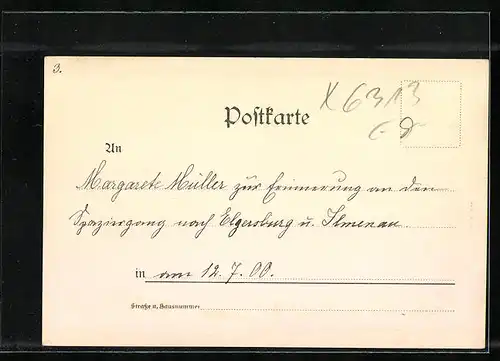 3.
X 6313
Postkarte
An
Margarete Müller zur Erinnerung an den
Spaziergang nach Elgersburg u. Ilmenau
in am 12. 7. 00.
Straße u. Hausnummer